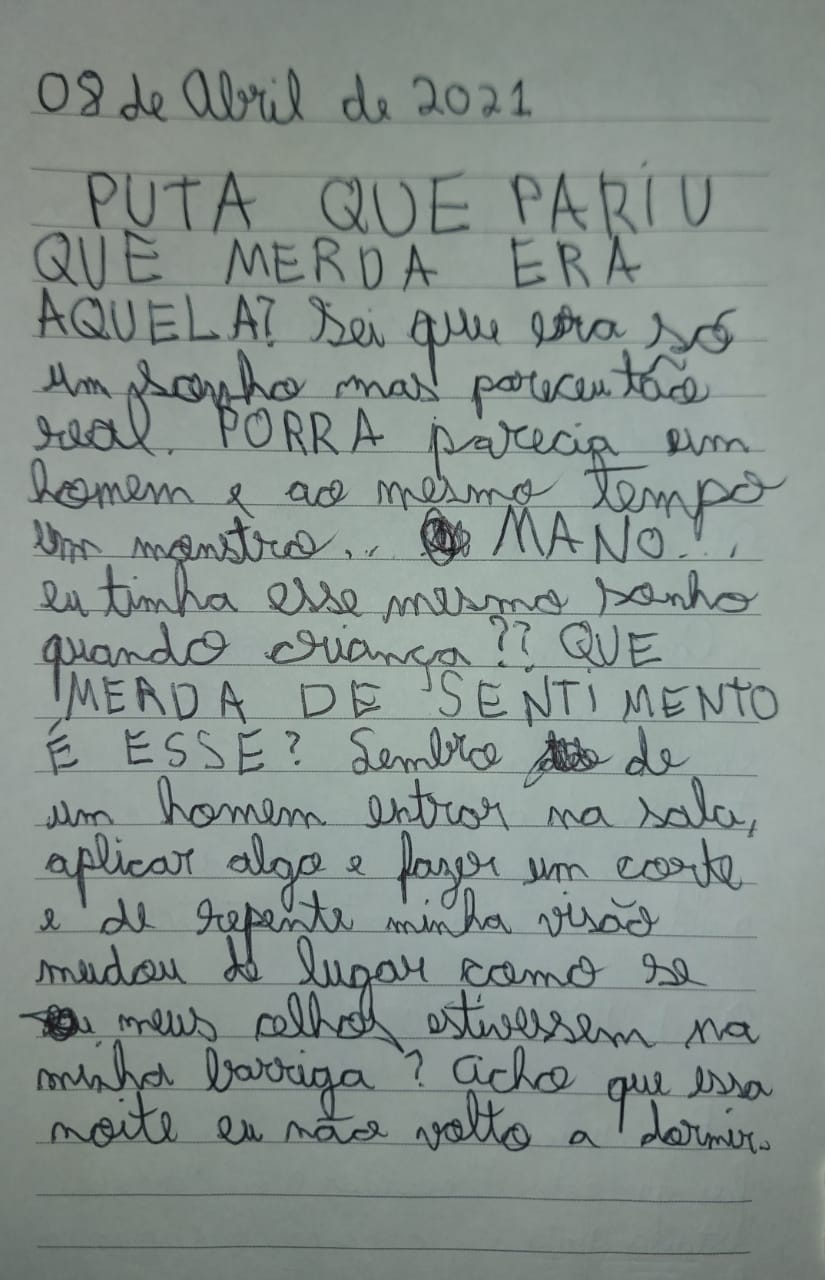 08 de Abril de 2021
PUTA QUE PARIU
QUE MERDA ERA
AQUELA? Sei que era só
um sonho mas pareceu tão
real. PORRA parecia um
homem e ao mesmo tempo
um monstro... MANO...
eu tinha esse mesmo sonho
quando criança?? QUE
MERDA DE SENTIMENTO
É ESSE? Lembro de
um homem entrar na sala,
aplicar algo e fazer um corte
e de repente minha visão
mudou de lugar como se
meus olhos estivessem na
minha barriga? Acho que essa
noite eu não volto a dormir.